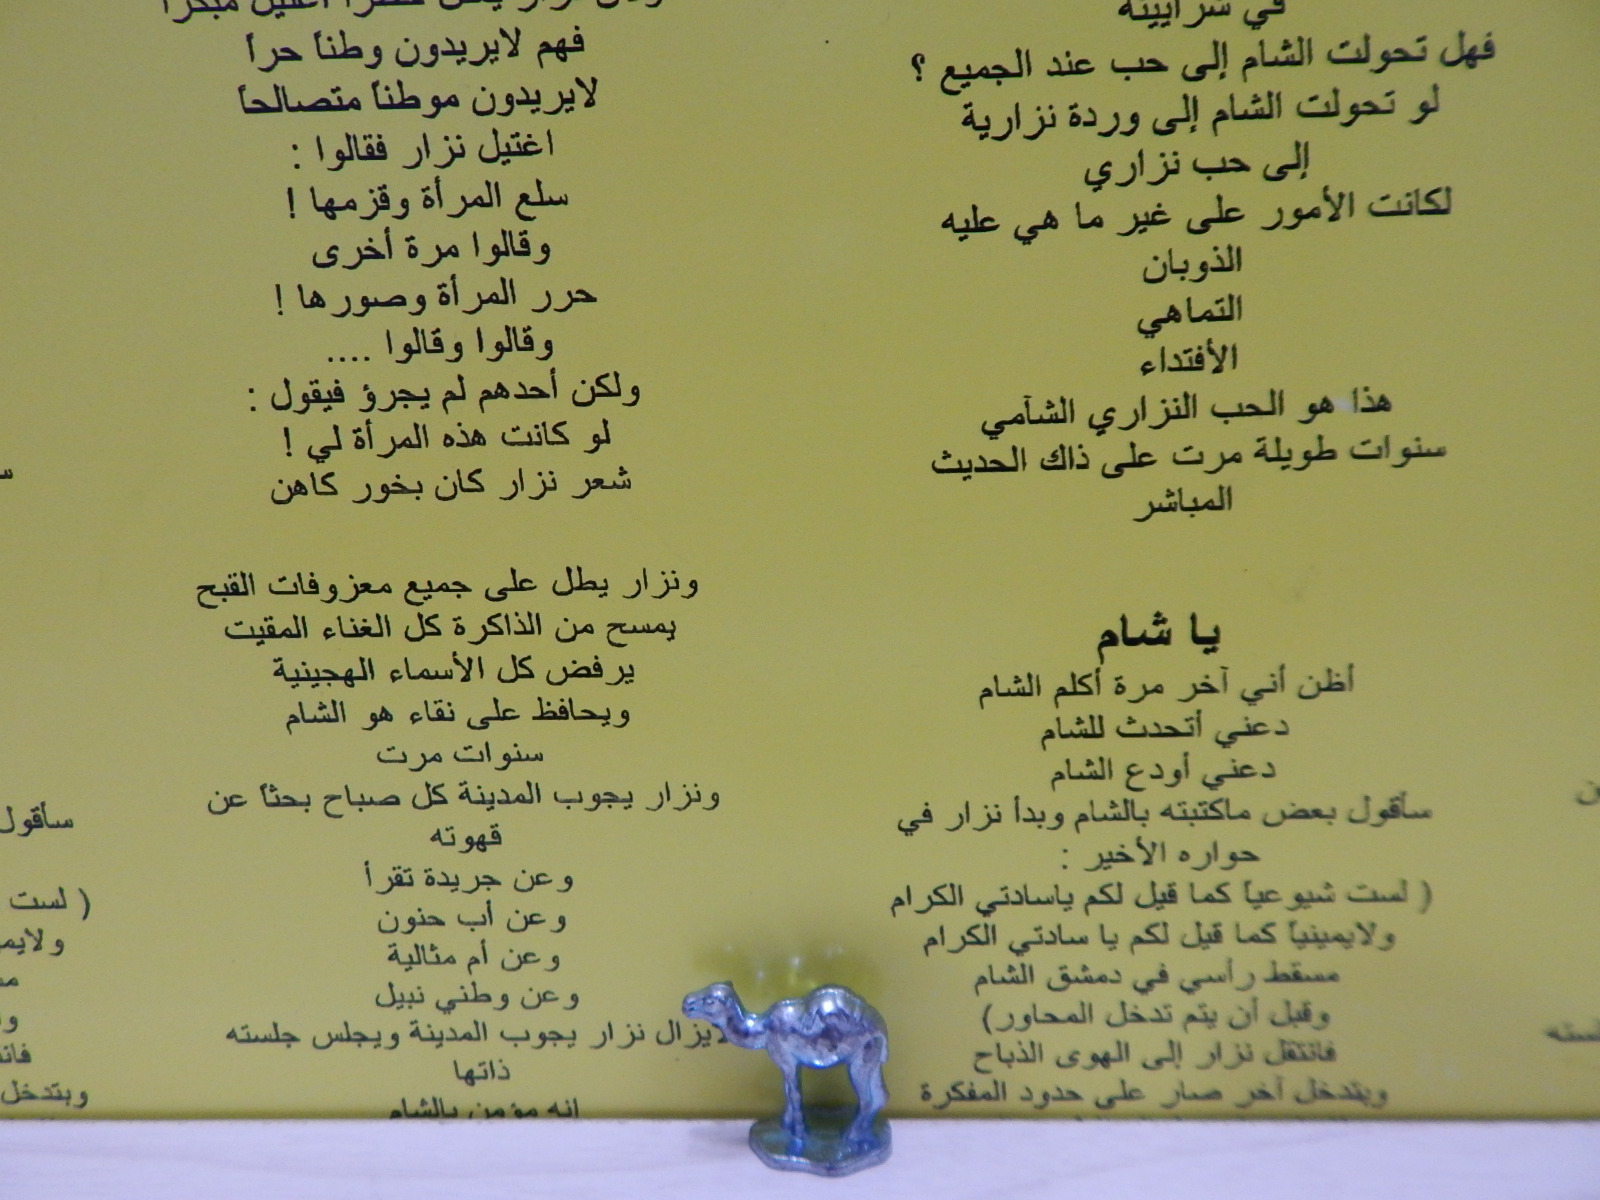 في شرايينه
فهل تحولت الشام إلى حب عند الجميع ؟
لو تحولت الشام إلى وردة نزارية
إلى حب نزاري
لكانت الأمور على غير ما هي عليه
الذوبان
التماهي
الأفتداء
هذا هو الحب النزاري الشآمي
سنوات طويلة مرت على ذاك الحديث
المباشر
يا شام
أظن أني آخر مرة أكلم الشام
دعني أتحدث للشام
دعني أودع الشام
سأقول بعض ماكتبته بالشام وبدأ نزار في
حواره الأخير :
( لست شيوعياً كما قيل لكم ياسادتي الكرام
ولايمينياً كما قيل لكم يا سادتي الكرام
مسقط رأسي في دمشق الشام
وقبل أن يتم تدخل المحاور)
فانتقل نزار إلى الهوى الذباح
وبتدخل آخر صار على حدود المفكرة
فهم لايريدون وطناً حراً
لايريدون موطناً متصالحاً
اغتيل نزار فقالوا :
سلع المرأة وقزمها !
وقالوا مرة أخرى
حرر المرأة وصورها !
وقالوا وقالوا ....
ولكن أحدهم لم يجرؤ فيقول :
لو كانت هذه المرأة لي !
شعر نزار كان بخور كاهن
ونزار يطل على جميع معزوفات القبح
يمسح من الذاكرة كل الغناء المقيت
يرفض كل الأسماء الهجينية
ويحافظ على نقاء هو الشام
سنوات مرت
ونزار يجوب المدينة كل صباح بحثاً عن
قهوته
وعن جريدة تقرأ
وعن أب حنون
وعن أم مثالية
وعن وطني نبيل
لايزال نزار يجوب المدينة ويجلس جلسته
ذاتها
انه مؤمن بالشام
سأقول
( لست
وبتدخل